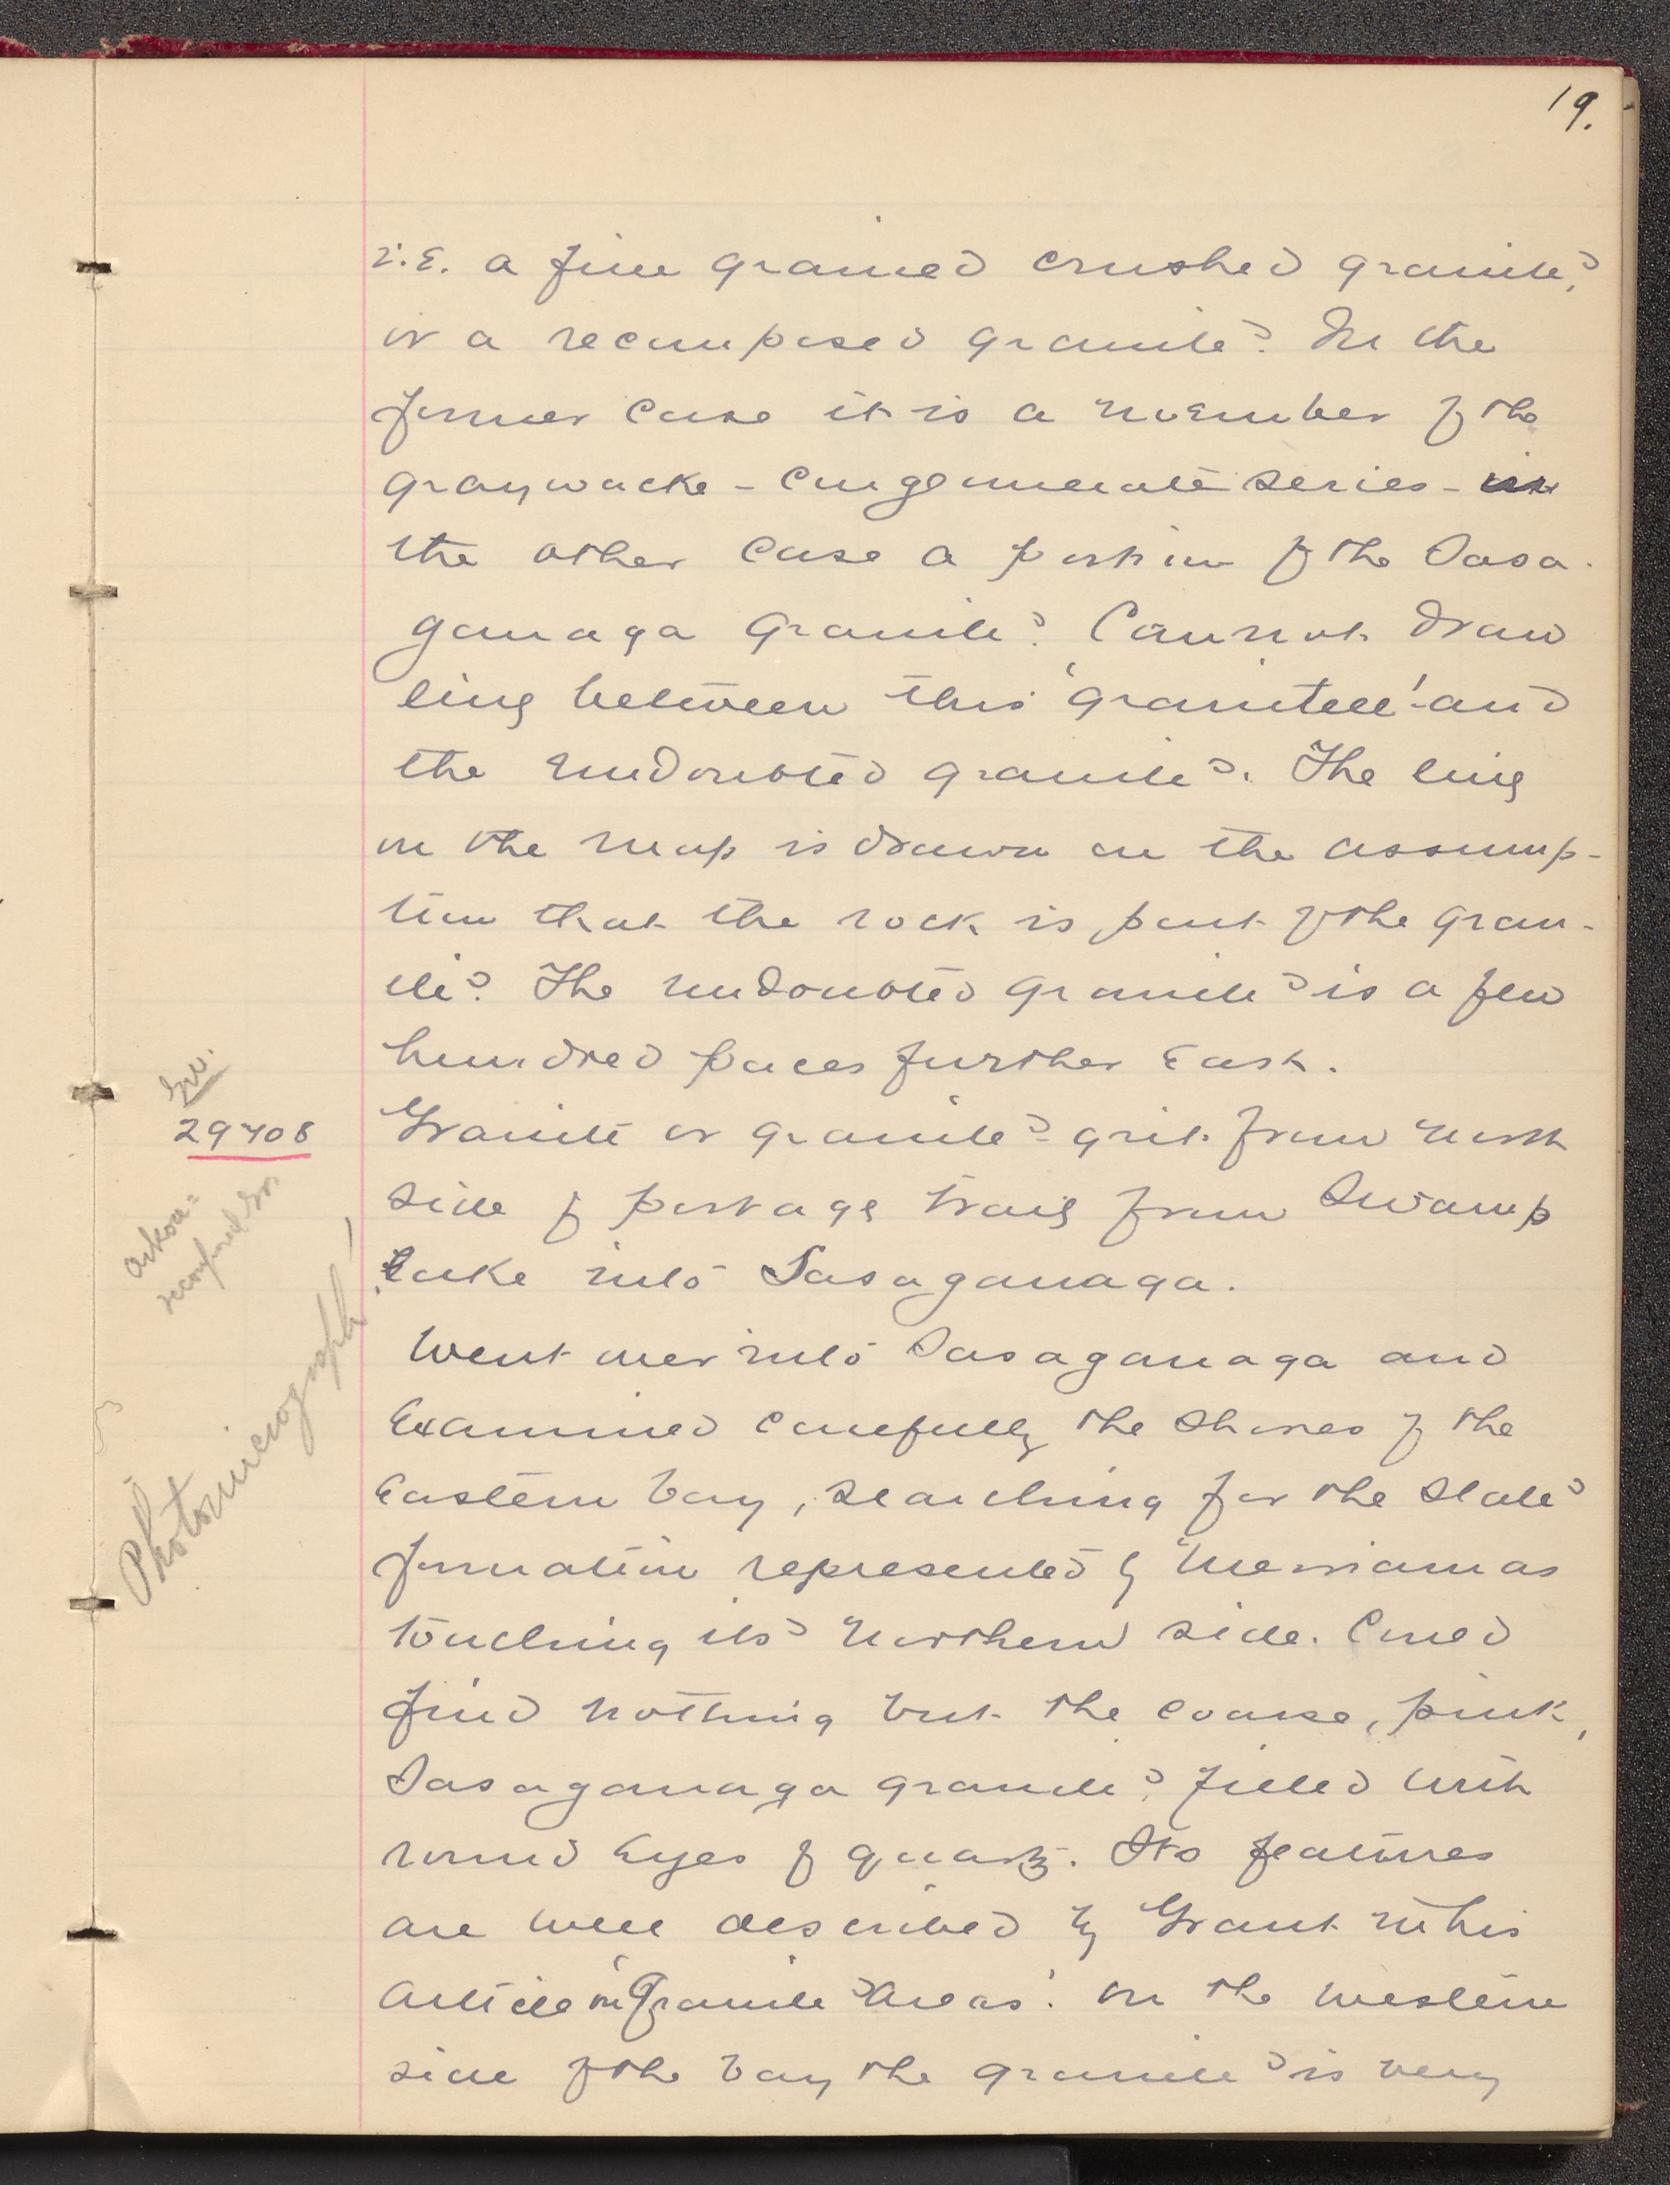 19.
i.e. a fine grained crushed granite,
or a recomposed granite? In the
former case it is a member of the
graywacke - conglomerate series - in
the other case a portion of the Sasa-
ganaga granite. Cannot draw
line between this 'granitell' and
the undoubted granite. The line
on the map is drawn on the assump-
tion that the rock is part of the gran-
ite. The undoubted granite is a few
hundred paces further East.
Gw.
29408
Granite or granite grit from north
side of portage trail from Swamp
Lake into Sasaganaga.
Arkose =
recomposed Gr.
Photomicrograph!
Went over into Sasaganaga and
Examined carefully the shores of the
Eastern bay, searching for the slate
formation represented by Merriam as
touching its northern side. Could
find nothing but the coarse, pink,
Sasaganaga granite, filled with
round Eyes of quartz. Its features
are well described by Grant in his
article on 'Granite Areas'. On the western
side of the bay the granite is very